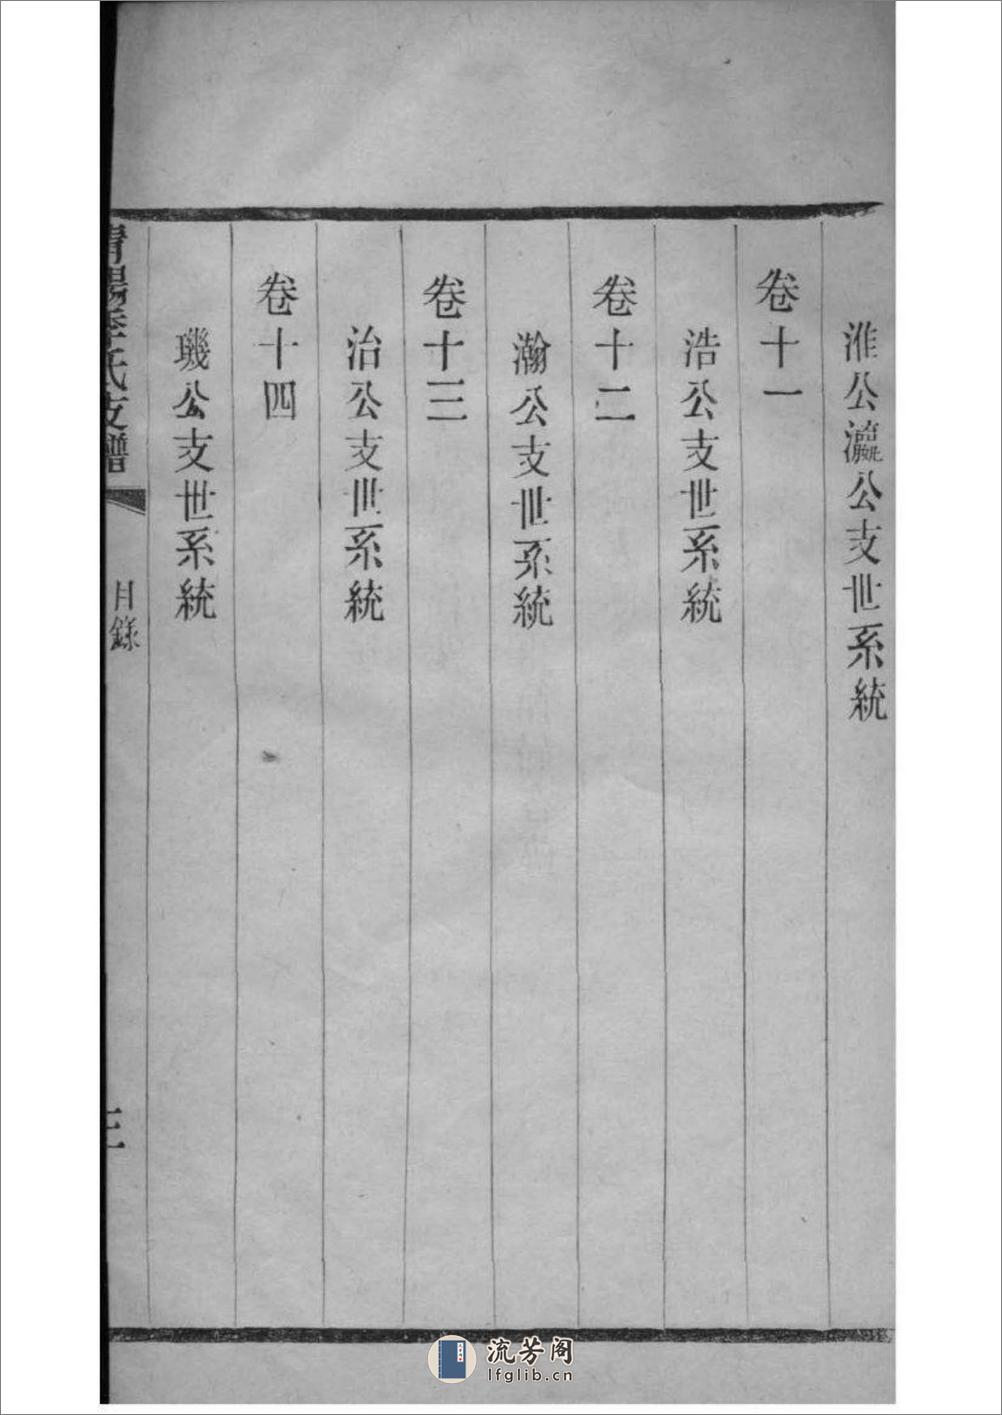 淮公瀛公支世系統
卷十一
浩公支世系統
卷十二
瀚公支世系統
卷十三
治公支世系統
卷十四
璣公支世系統
季氏支譜
目錄
三
流芳阁
lfglib.cn